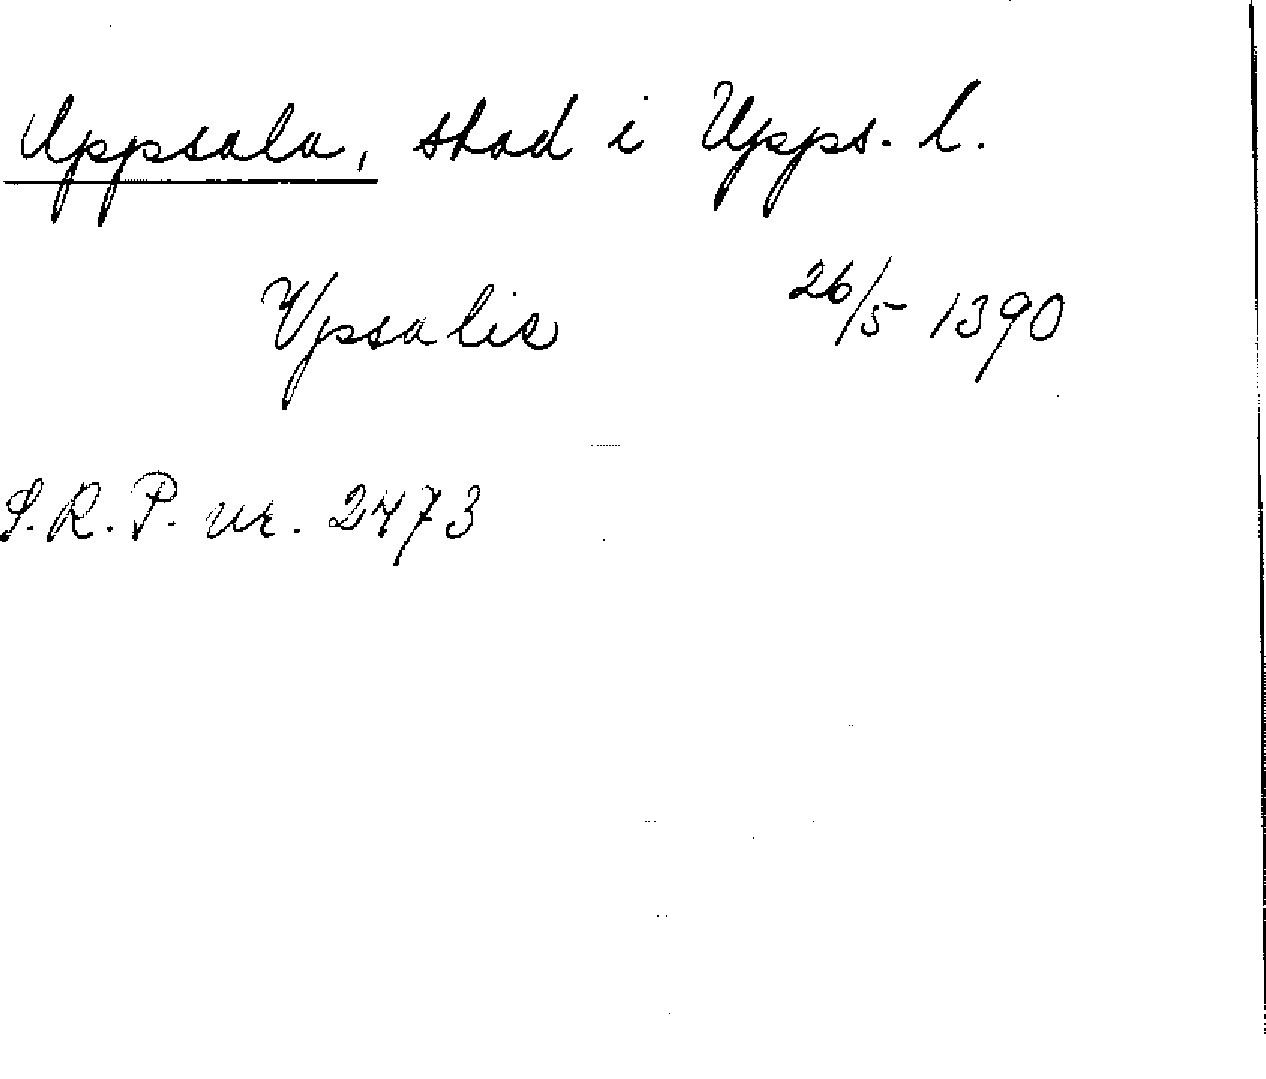 Uppsala, stad i Upps. l.
Vpsalis 26/5 1390
S.R.P. nr. 2473